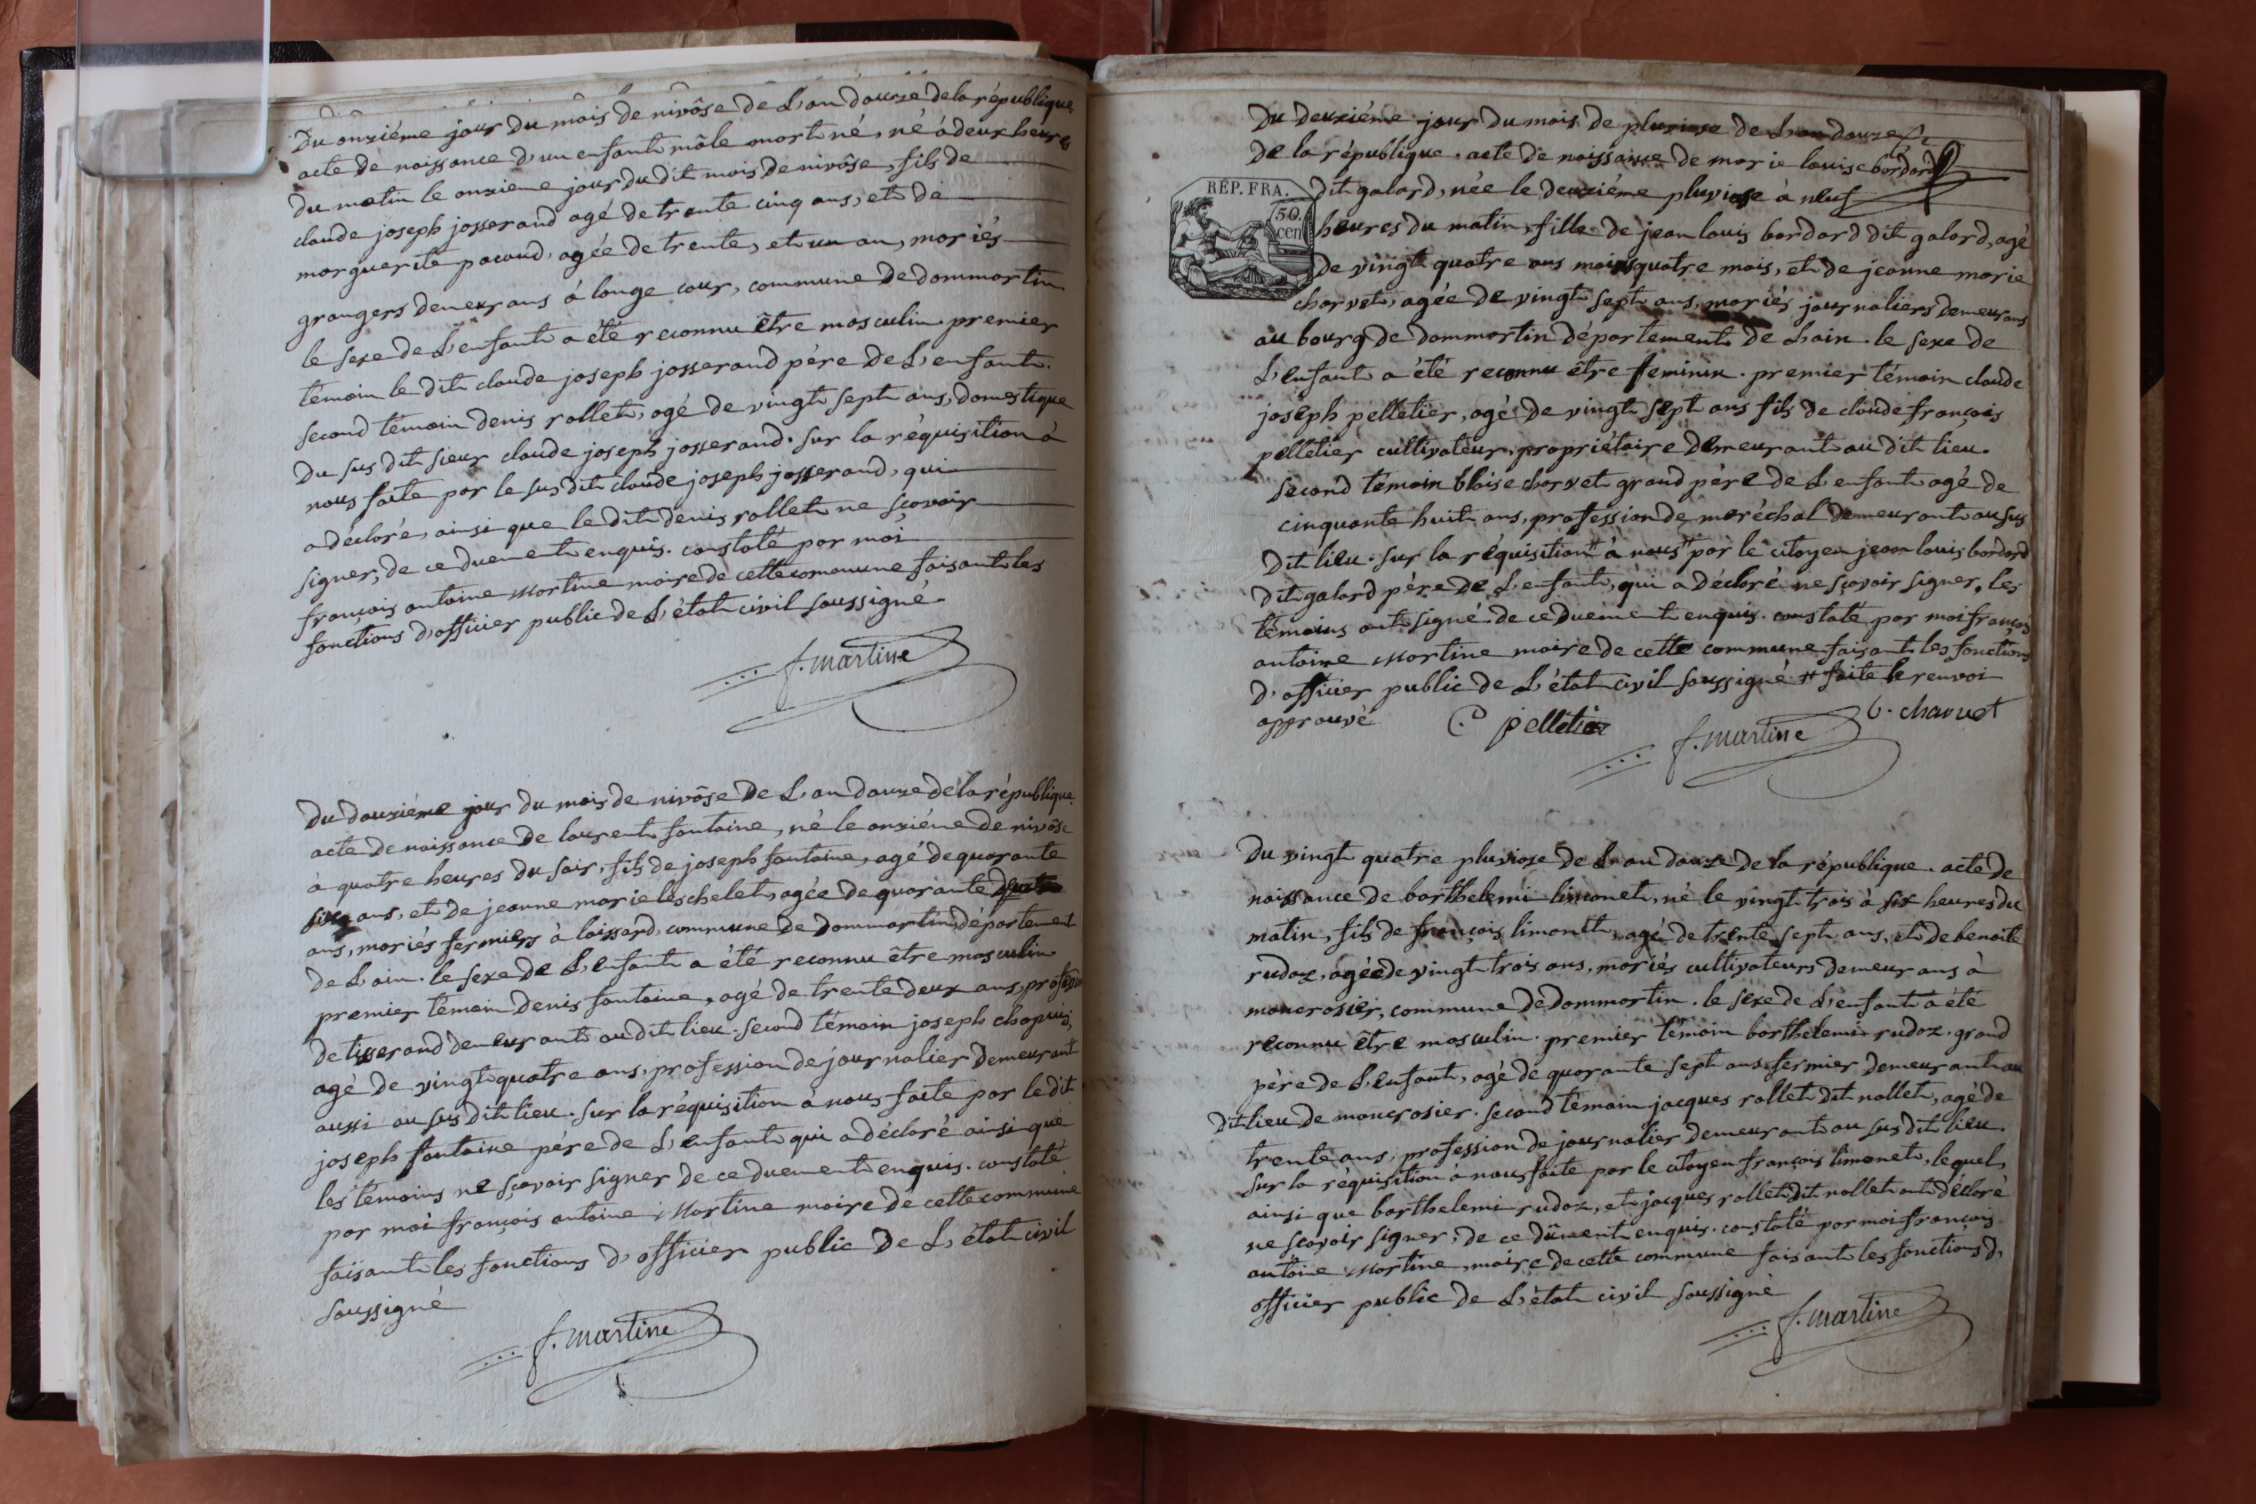 Du onziéme jour du mois de nivôse de L'an douze de la république
acte de naissance d'un enfant mâle mort né, né à deux heures
du matin le onzieme jour du dit mois de nivôse, fils de
claude joseph josserand agé de trente cinq ans, et de
marguerite pacoud, agée de trente, et un an, mariés
grangers demeurans à longe cour, commune de dommartin
le sexe de L'enfant a été reconnu être masculin. premier
témoin le dit claude joseph josserand père de L'enfant.
second témoin denis rollet, agé de vingt sept ans, domestique
du sus dit sieur claude joseph josserand. sur la réquisition à
nous faite par le susdit claude joseph josserand, qui
a déclaré, ainsi que le dit denis rollet ne sçavoir
signer, de ce duement enquis. constaté par moi
françois antoine Martine maire de cette commune faisant les
fonctions d'officier public de L'état civil soussigné.
f. martine
Du douziéme jour du mois de nivôse de L'an douze de la république.
acte de naissance de laurent fontaine, né le onziéme de nivôse
à quatre heures du soir, fils de joseph fontaine, agé de quarante
six ans, et de jeanne marie leschelet, agée de quarante
ans, mariés fermiers à loissard, commune de dommartin, département
de L'ain. le sexe de L'enfant a été reconnu être masculin
premier témoin denis fontaine, agé de trente deux ans, profession
de tisserand demeurant au dit lieu. second témoin joseph chapuis,
agé de vingt quatre ans, profession de journalier demeurant
aussi au sus dit lieu. sur la réquisition à nous faite par le dit
joseph fontaine père de L'enfant qui a déclaré ainsi que
les témoins ne sçavoir signer de ce duement enquis. constaté
par moi françois antoine Martine maire de cette commune
faisant les fonctions d'officier public de L'état civil
soussigné
f. martine
Du deuxiéme jour du mois de pluviose de L'an douze
de la république. acte de naissance de marie louise bordard
RÉP. FRA.
50. cen
dit galard, née le deuxiéme pluviose à neuf
heures du matin, fille de jean louis bordard dit galard, agé
de vingt quatre ans moins quatre mois, et de jeanne marie
charvet, agée de vingt sept ans, mariés journaliers demeurans
au bourg de dommartin département de L'ain. le sexe de
L'enfant a été reconnu être feminin. premier témoin claude
joseph pelletier, agé de vingt sept ans fils de claude françois
pelletier cultivateur, propriétaire demeurant au dit lieu.
second témoin blaise charvet grand pére de L'enfant agé de
cinquante huit ans, profession de maréchal demeurant au sus
dit lieu. sur la réquisition # à nous # par le citoyen jean louis bordard
dit galard pére de L'enfant, qui a déclaré ne sçavoir signer, les
témoins ont signé. de ce duement enquis. constaté par moi françois
antoine Martine maire de cette commune faisant les fonctions
d'officier public de L'état civil soussigné # faite le renvoi
approuvé
C pelletier
b. charvet
f. martine
Du vingt quatre pluviose de L'an douze de la république. acte de
naissance de barthelemi limonet, né le vingt trois à six heures du
matin, fils de françois limonet, agé de trente sept ans, et de benoite
rudoz, agée de vingt trois ans, mariés cultivateurs demeurans à
moncrosier, commune de dommartin. le sexe de L'enfant a été
reconnu être masculin. premier témoin barthelemi rudoz. grand
pére de L'enfant, agé de quarante sept ans fermier demeurant au
dit lieu de moncrosier. second témoin jacques rollet dit nollet, agé de
trente ans, profession de journalier demeurant au sus dit lieu.
sur la réquisition à nous faite par le citoyen françois limonet, lequel,
ainsi que barthelemi rudoz, et jacques rollet dit nollet ont déclaré
ne sçavoir signer, de ce dûment enquis. constaté par moi françois
antoine Martine, maire de cette commune faisant les fonctions d,
officier public de L'état civil soussigné
f. martine